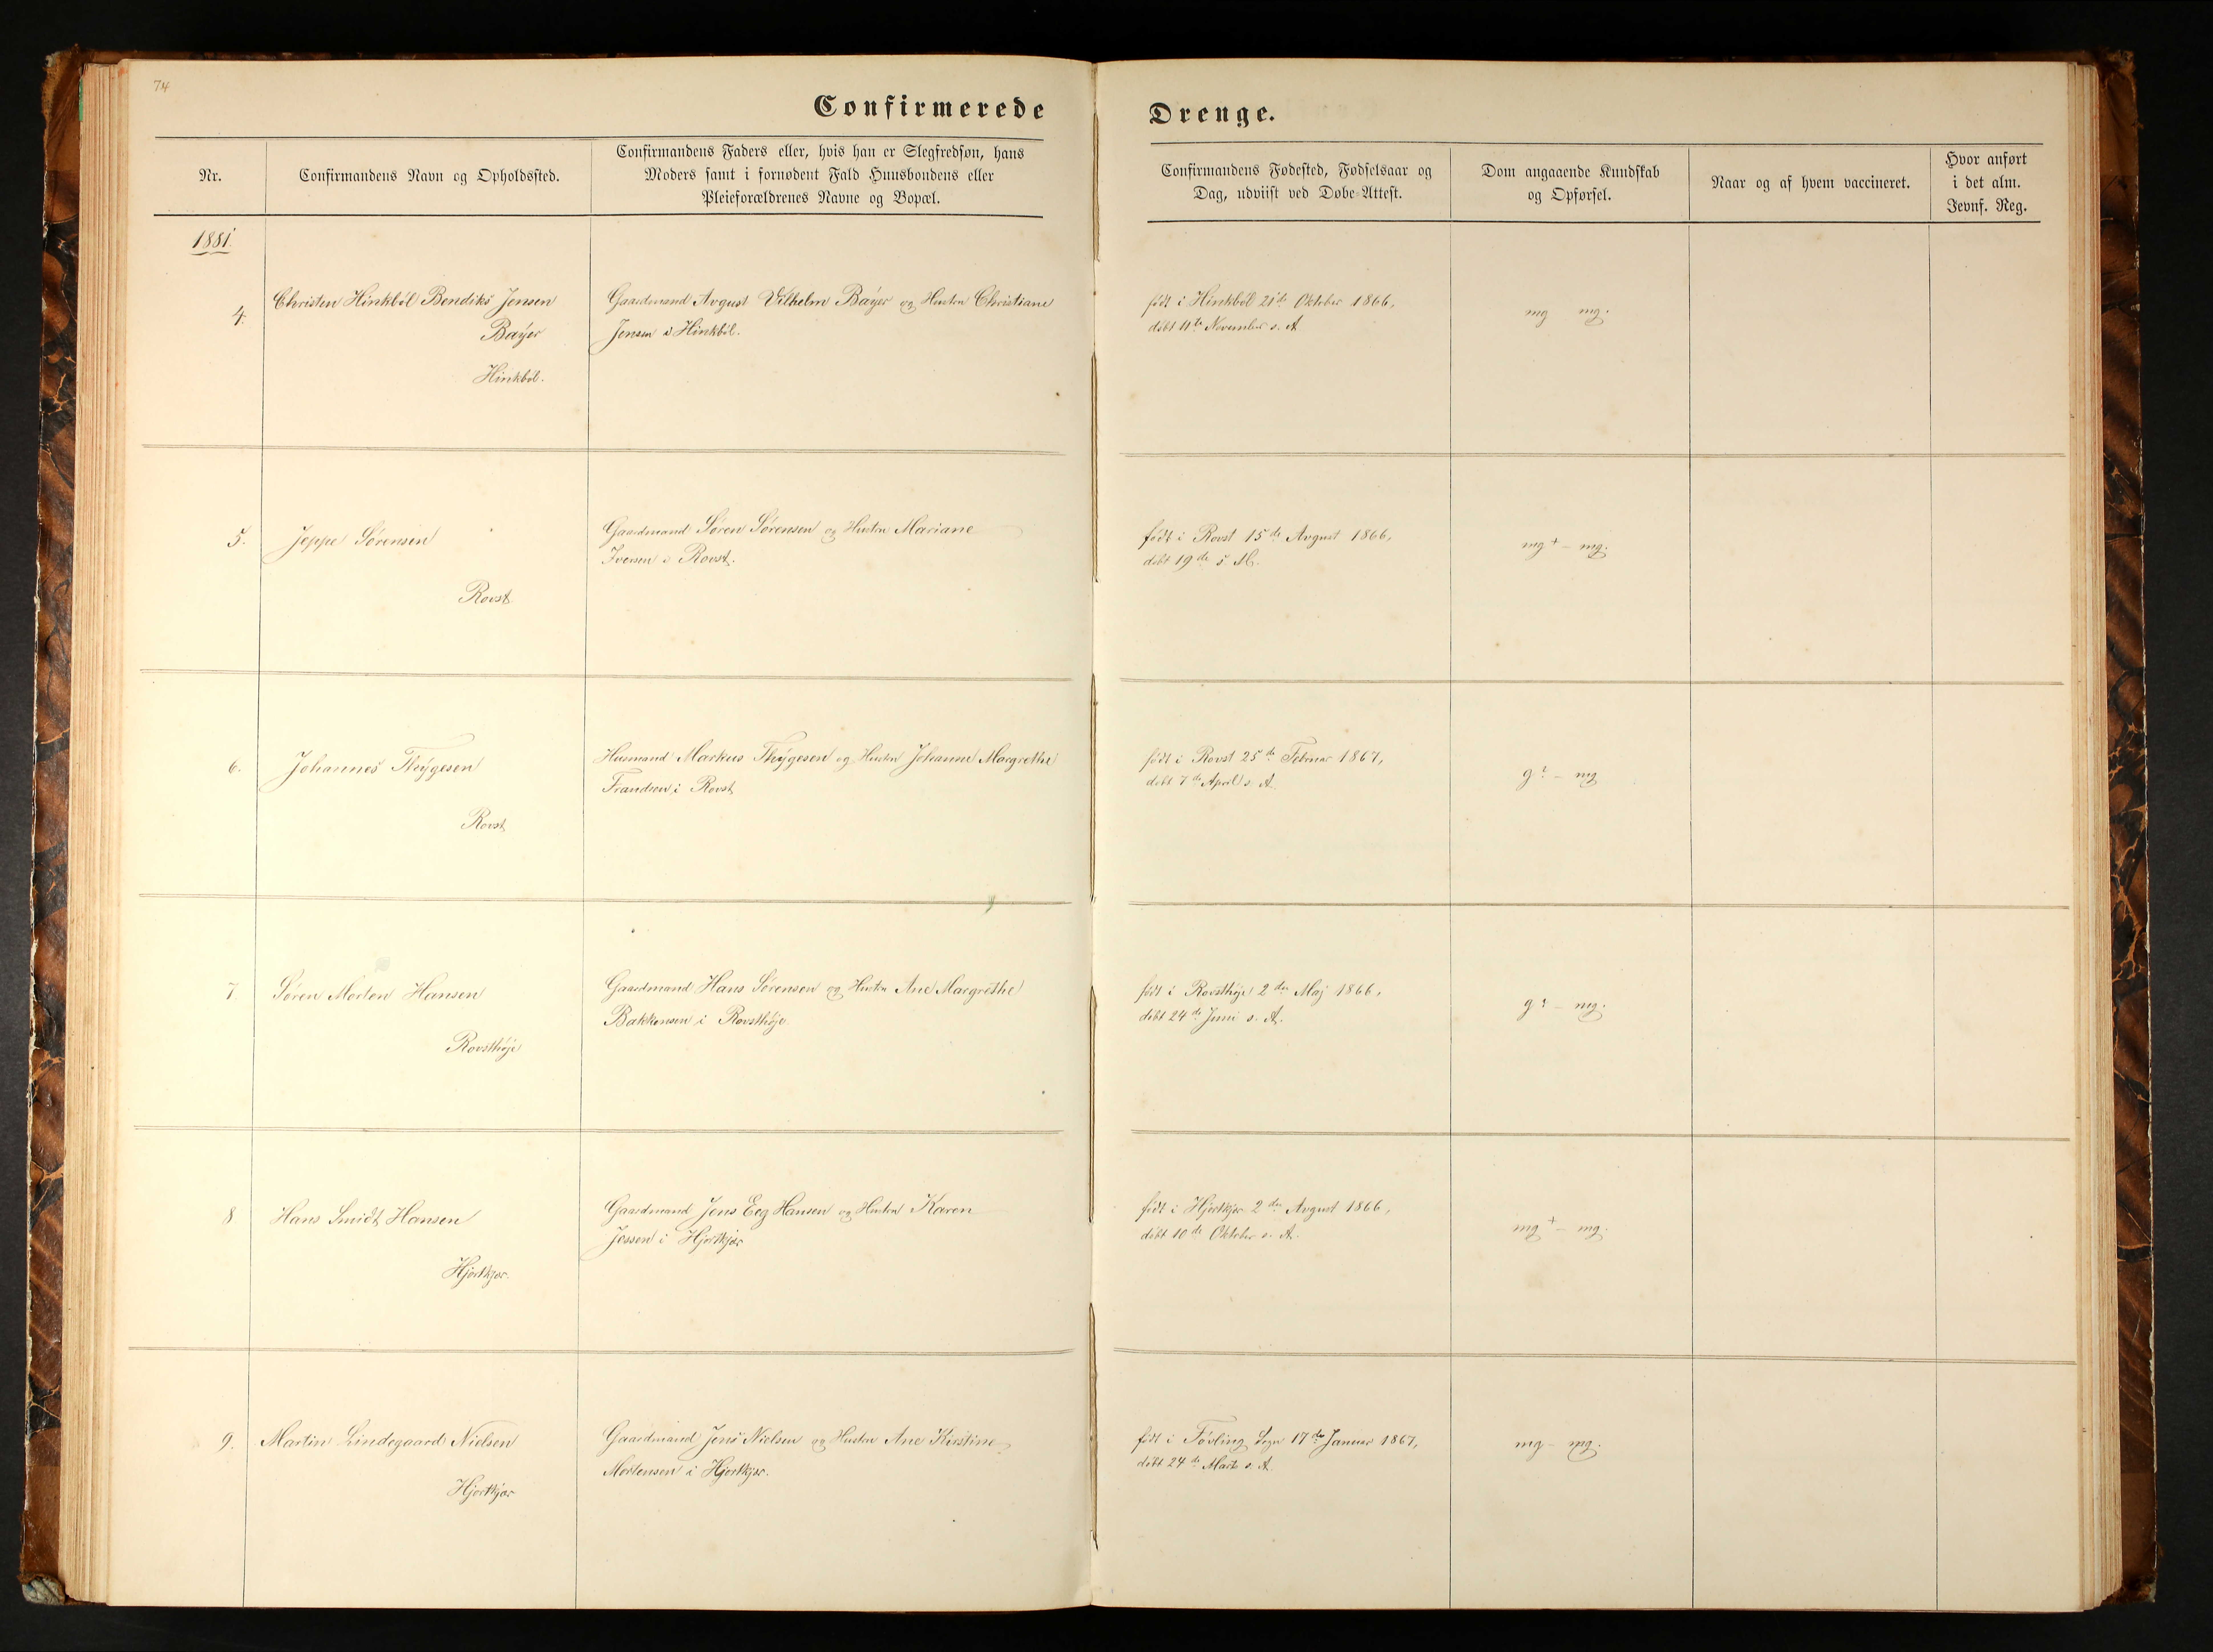 74
Confirmerede
Drenge.
Nr.
Confirmandens Navn og Opholdssted.
Confirmandens Faders eller, hvis han er Slegfredsøn, hans
Moders samt i fornødent Fald Huusbondens eller
Pleieforældrenes Navne og Bopæl.
Confirmandens Fødested, Fødselsaar og
Dag, udviist ved Døbe-Attest.
Dom angaaende Kundskab
og Opførsel.
Naar og af hvem vaccineret.
Hvor anført
i det alm.
Jevnf. Reg.
1881.
4.
Christen Hinkból Bendiks Jensen
Bayer
Hinkból.
Gaardmand Avgust Vilhelm Bayer og Hustru Christiane
Jensen i Hinkból.
født i Hinkból 21de Oktober 1866,
døbt 11te November s. A
mg mg.
5.
Jeppe Sørensen
Rovst
Gaardmand Søren Sørensen og Hustru Mariane
Iversen i Rovst.
født i Rovst 15de Avgust 1866,
døbt 19de s. M.
mg + – mg.
6.
Johannes Thygesen
Rovst
Husmand Markus Thygesen og Hustru Johanne Margrethe
Frandsen i Rovst
født i Rovst 25de Februar 1867,
døbt 7de April s. A.
g ? – mg
7
Søren Morten Hansen
Rovsthøje
Gaardmand Hans Sørensen og Hustru Ane Margrethe
Bakkensen i Rovsthøje.
født i Rovsthøje 2den Maj 1866,
døbt 24de Juni s. A.
g ? – mg.
8
Hans Smidt Hansen
Hjortkjær.
Gaardmand Jens Eeg Hansen og Hustru Karen
Jessen i Hjortkjær
født i Hjortkjær 2den Avgust 1866,
døbt 10de Oktober s. A.
mg + – mg.
9.
Martin Lindegaard Nielsen
Hjortkjær
Gaardmand Jens Nielsen og Hustru Ane Kirstine
Mortensen i Hjortkjær.
født i Føvling Sogn 17de Januar 1867,
døbt 24de Marts s. A.
mg – mg.